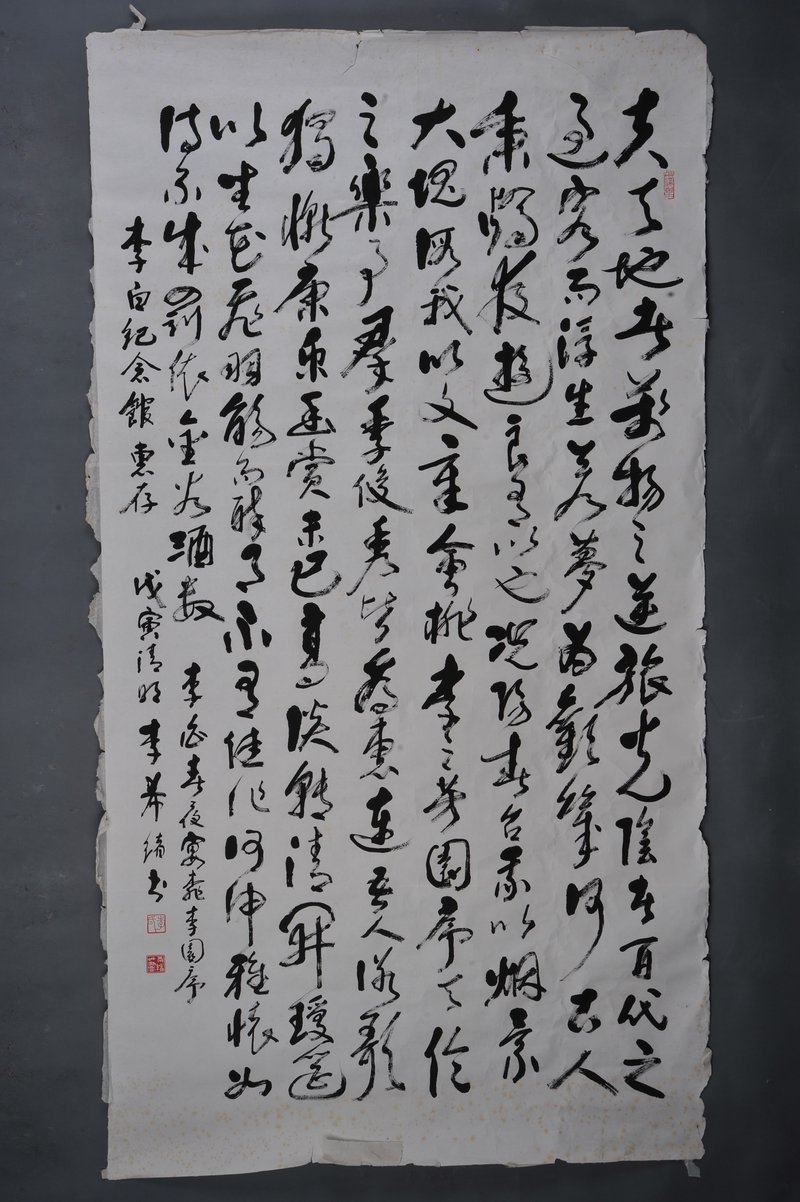 夫天地者萬物之逆旅光陰者百代之
過客而浮生若夢為歡幾何古人
秉燭夜遊良有以也況陽春召我以烟景
大塊假我以文章會桃李之芳園序天倫
之樂事羣季俊秀皆為惠連吾人詠歌
獨慚康樂幽賞未已高談轉清開瓊筵
以坐花飛羽觴而醉月不有佳作何伸雅懷如
詩不成罰依金谷酒數
李白春夜宴桃李園序
李白紀念館惠存
戊寅清明李希书